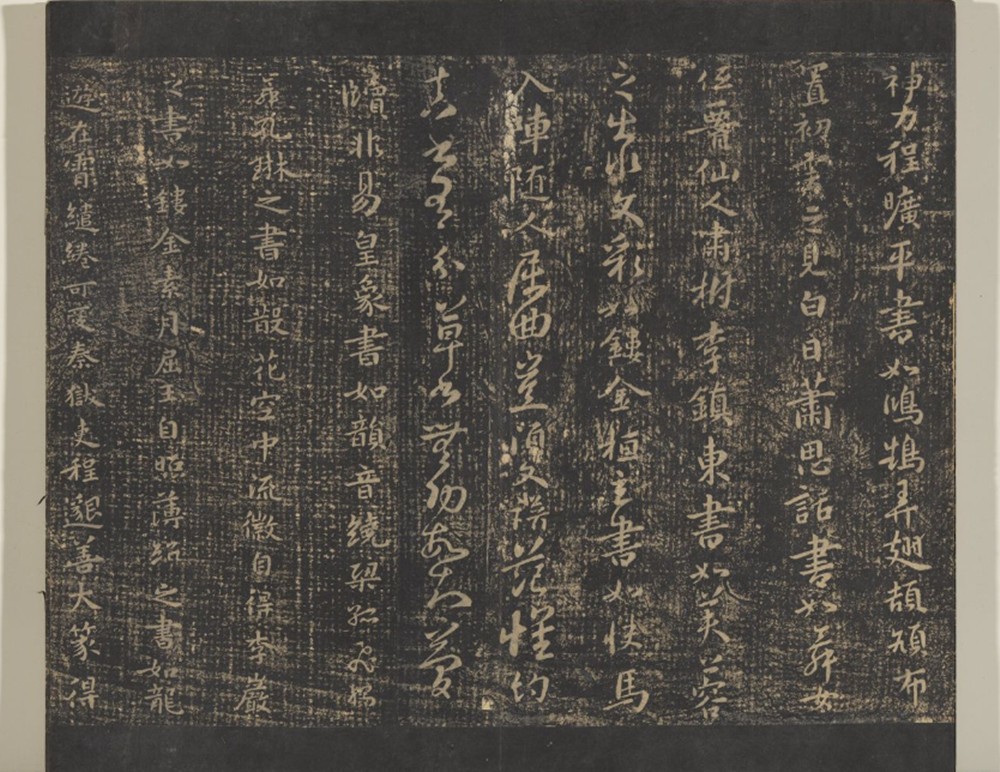 神力程曠平書如鴻鵠弄翅頡頏布
置初雲之見白日蕭思話書如舞女
低腰仙人嘯樹李鎮東書如芙蓉
之出水文彩如鏤金桓玄書如快馬
入陣隨人屈曲豈須文譜范懷約
真書有分草書無功故知簡
牘非易皇象書如韻音繞梁孤飛獨
舞孔琳之書如散花空中流徽自得李巖
之書如鏤金素月屈玉自照薄紹之書如龍
遊在霄繾綣可愛秦獄吏程邈善大篆得